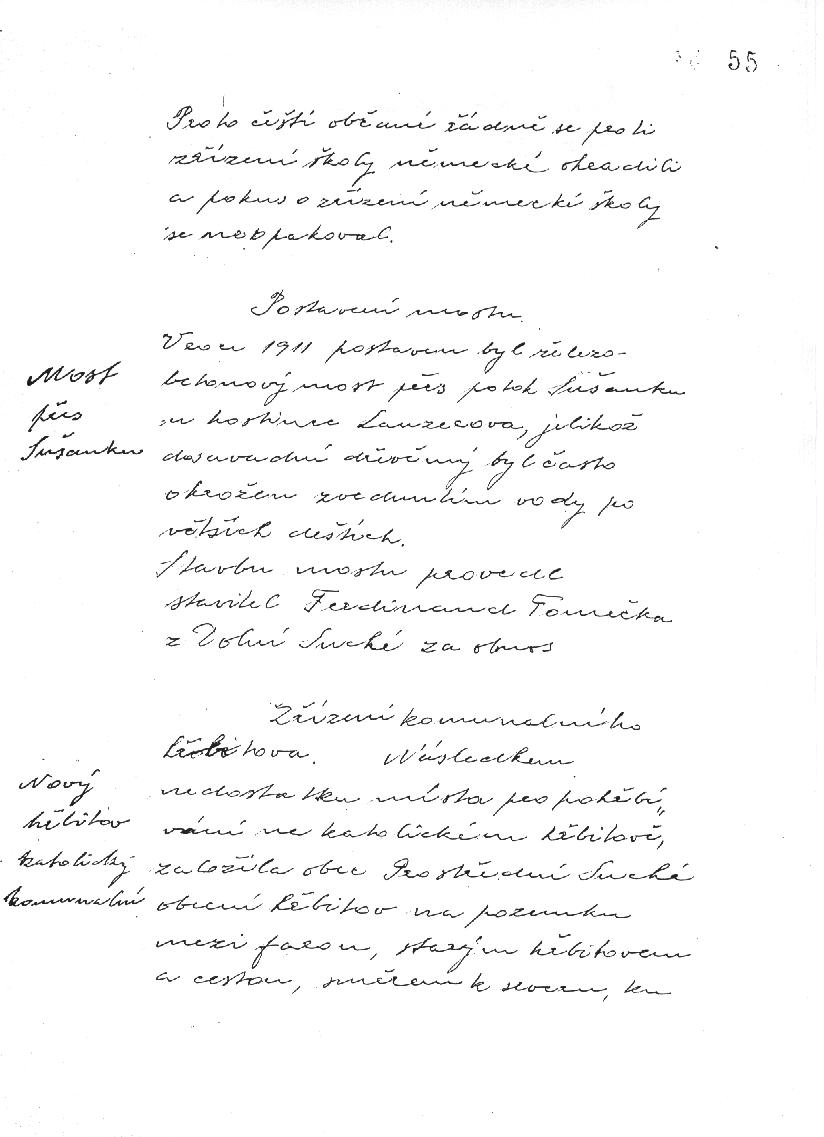 55
Proto čeští občané řádně se proti
zřízení školy německé ohradili
a pokus o zřízení německé školy
se neopakoval.
Postavení mostu.
V roce 1911 postaven byl železo-
betonový most přes potok Sušanku
u hostince Lanzerova, jelikož
dosavadní dřevěný byl často
ohrožen zvednutím vody po
větších deštích.
Stavbu mostu provedl
stavitel Ferdinand Tomečka
z Dolní Suché za obnos
Most
přes
Sušanku
Zřízení komunalního
hřbitova. Následkem
nedostatku místa pro pohřbí„
vání na katolickém hřbitově,
založila obec Prostřední Suchá
obecní hřbitov na pozemku
mezi farou, starým hřbitovem
a cestou, směrem k severu, ku
Nový
hřbitov
katolický
komunalní